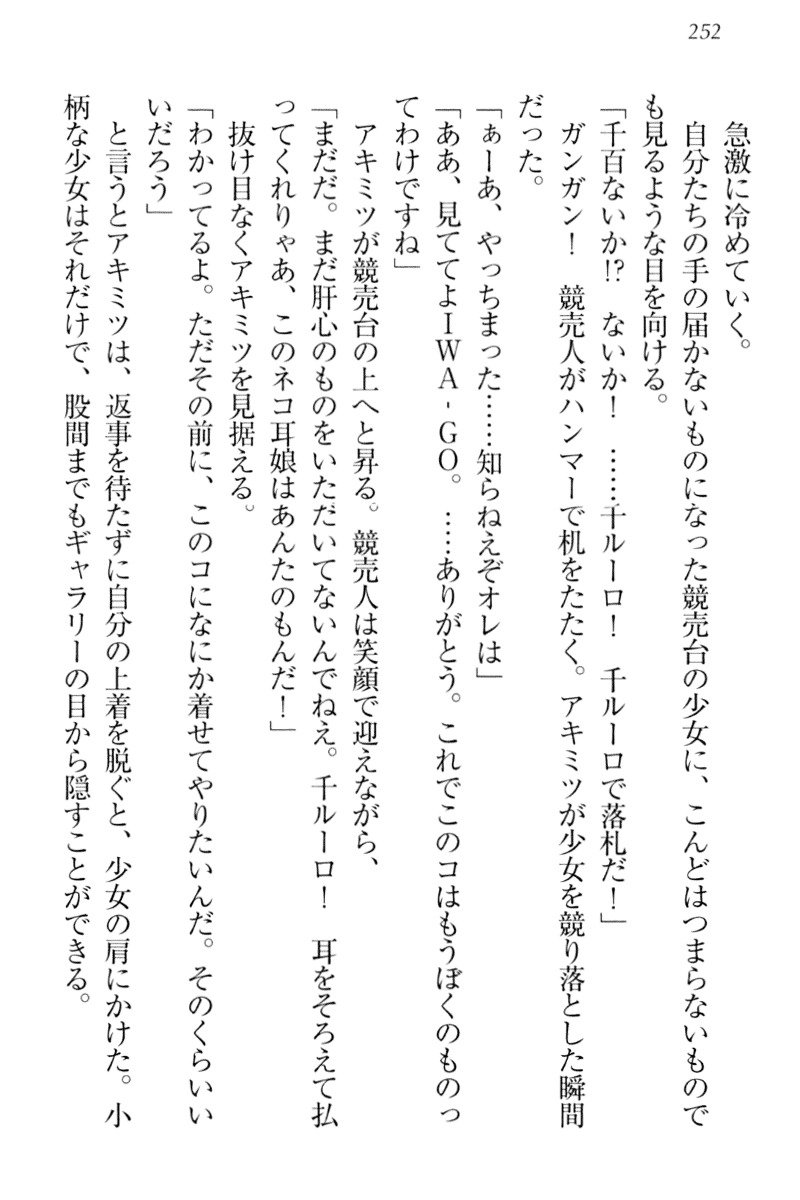 252
急激に冷めていく。
自分たちの手の届かないものになった競売台の少女に、こんどはつまらないもので
も見るような目を向ける。
「千百ないか!?　ないか！　……千ルーロ！　千ルーロで落札だ！」
ガンガン！　競売人がハンマーで机をたたく。アキミツが少女を競り落とした瞬間
だった。
「ぁーあ、やっちまった……知らねえぞオレは」
「ああ、見ててよＩＷＡ‐ＧＯ。……ありがとう。これでこのコはもうぼくのものっ
てわけですね」
アキミツが競売台の上へと昇る。競売人は笑顔で迎えながら、
「まだだ。まだ肝心のものをいただいてないんでねえ。千ルーロ！　耳をそろえて払
ってくれりゃあ、このネコ耳娘はあんたのもんだ！」
抜け目なくアキミツを見据える。
「わかってるよ。ただその前に、このコになにか着せてやりたいんだ。そのくらいい
いだろう」
と言うとアキミツは、返事を待たずに自分の上着を脱ぐと、少女の肩にかけた。小
柄な少女はそれだけで、股間までもギャラリーの目から隠すことができる。